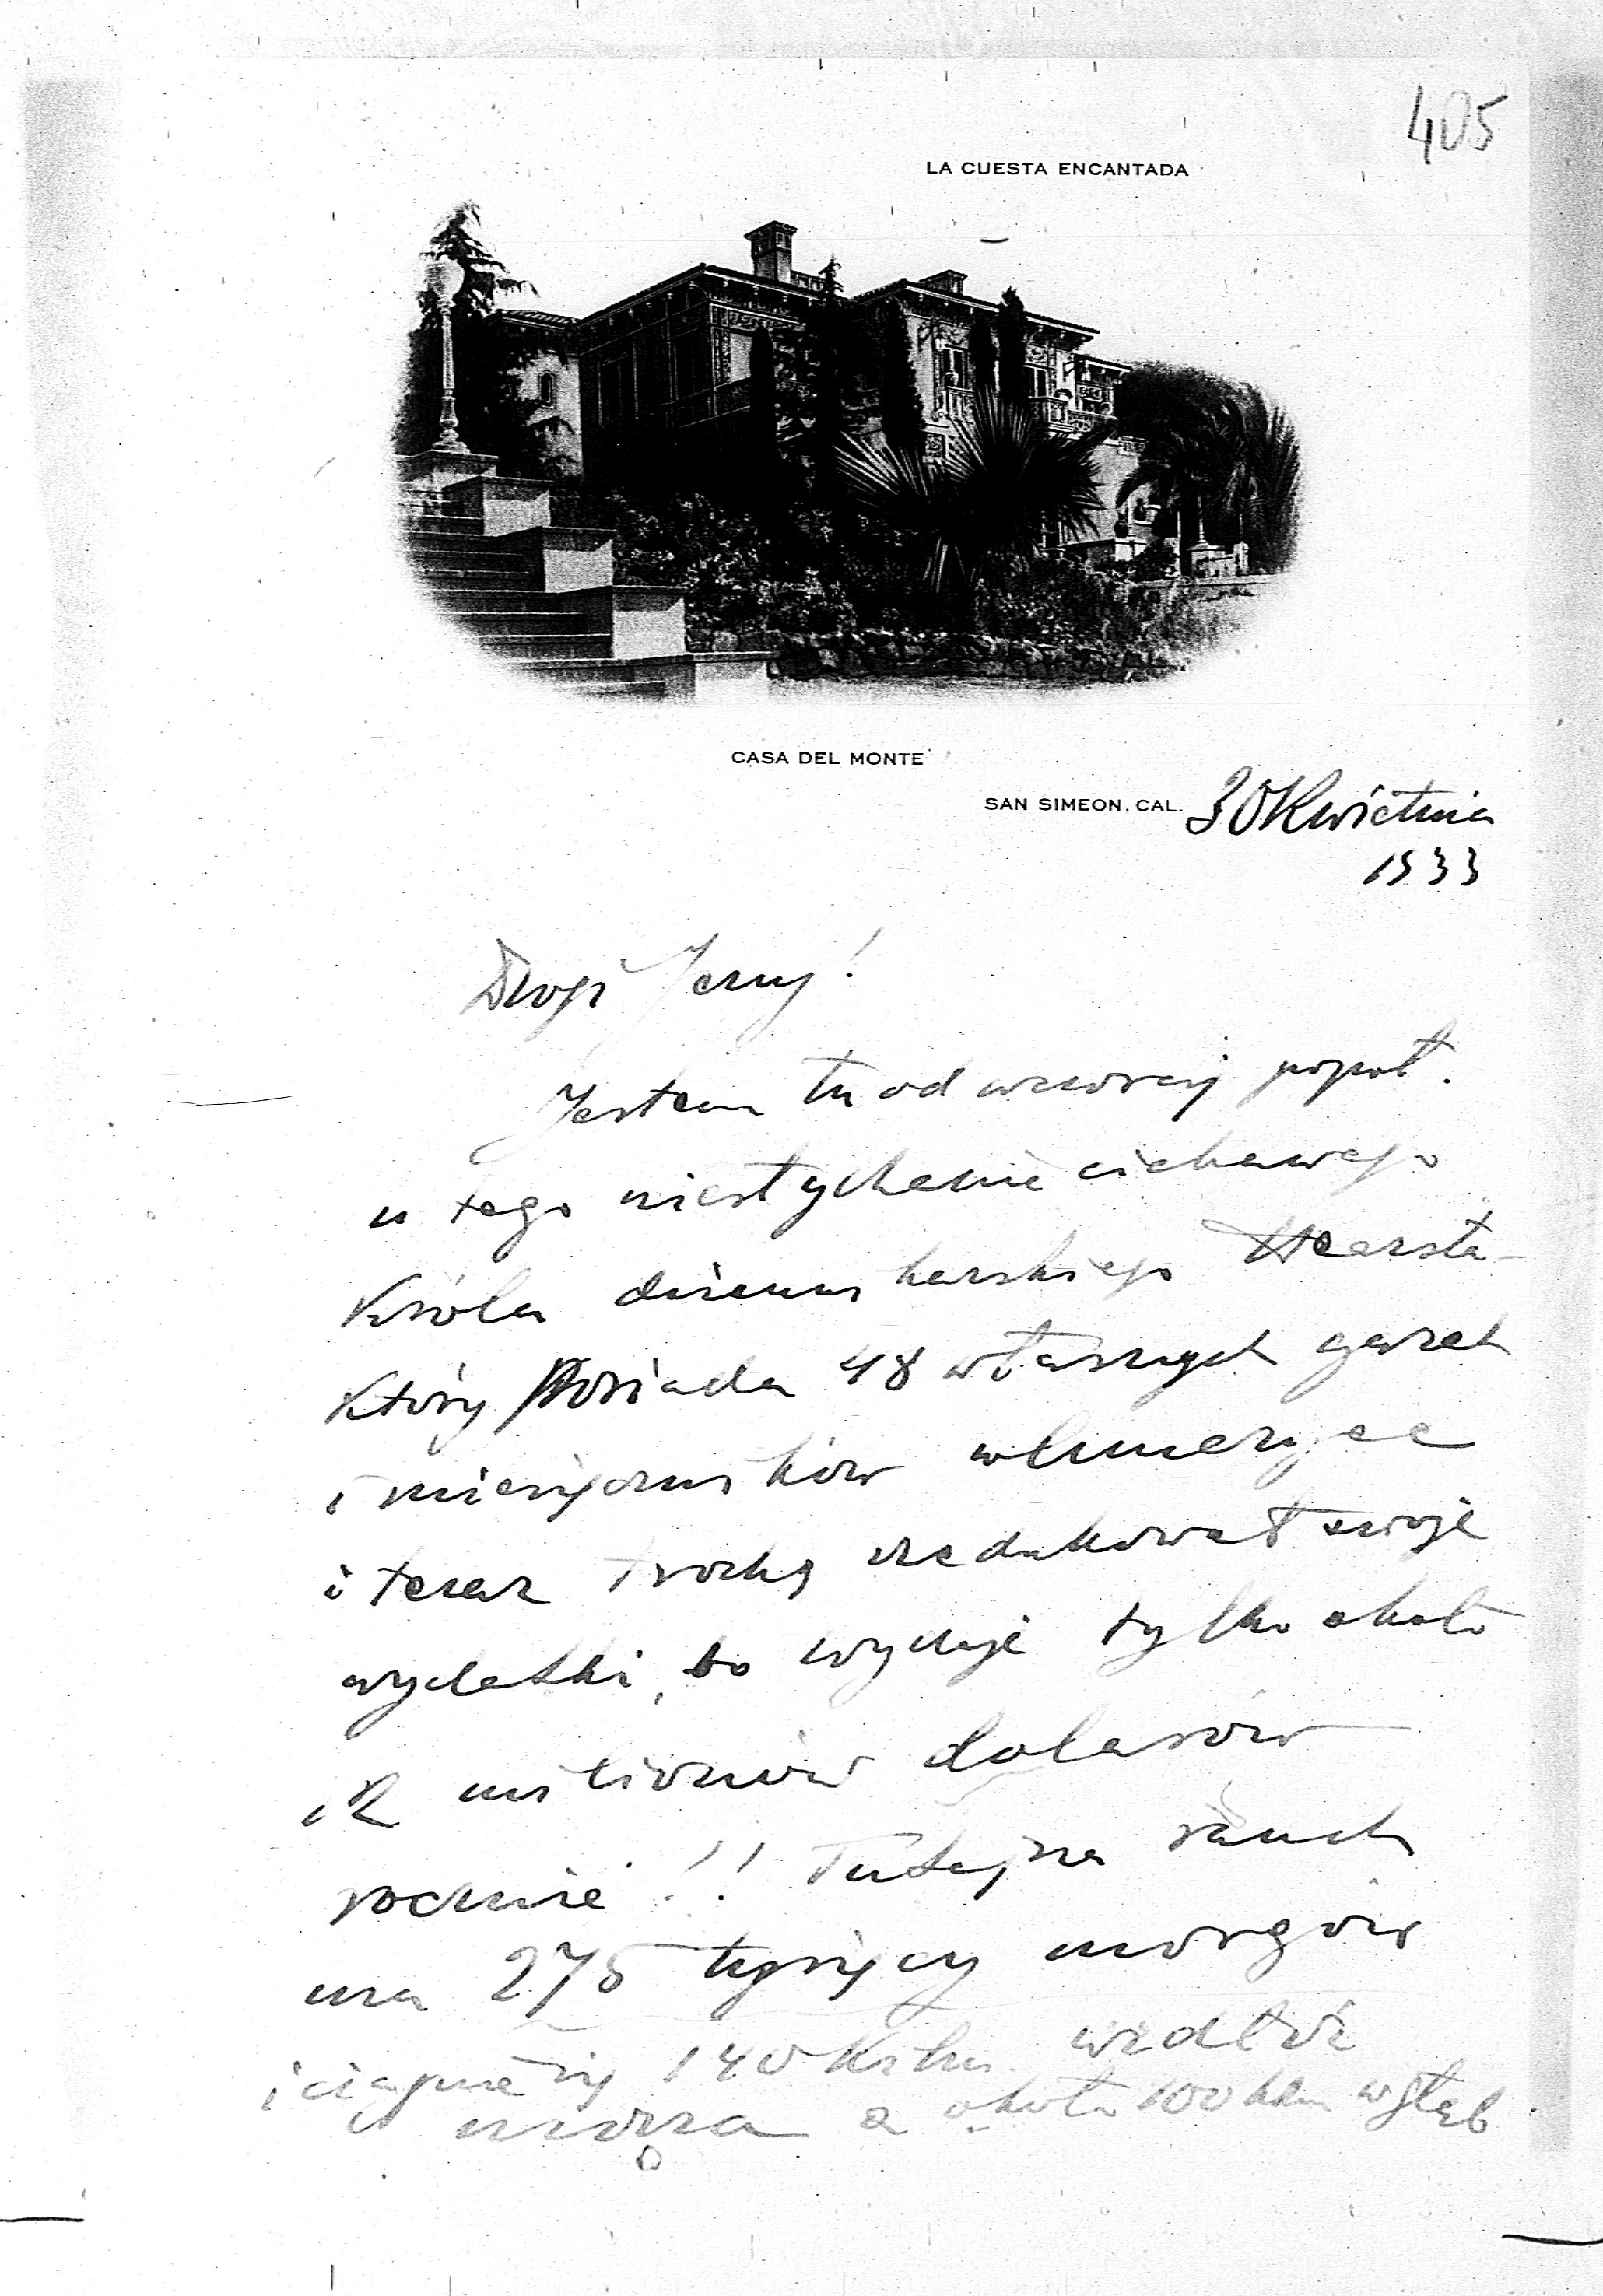 405
LA CUESTA ENCANTADA
CASA DEL MONTE
SAN SIMEON, CAL. 30 Kwietnia
1933
Drogi Jerzy!
Jestem tu od wczoraj popoł.
u tego niesłychanie ciekawego
Króla dziennikarskiego Hearsta –
Który posiada 48 własnych gazet
i miesięczników w Ameryce
i teraz trochę zredukował swoje
wydatki, bo wydaje tylko około
12 milionów dolarów
rocznie!! Tutaj na ranch
ma 275 tysięcy morgów
i ciągnie się 140 Klm. wzdłuż
morza a około 100 klm wgłąb